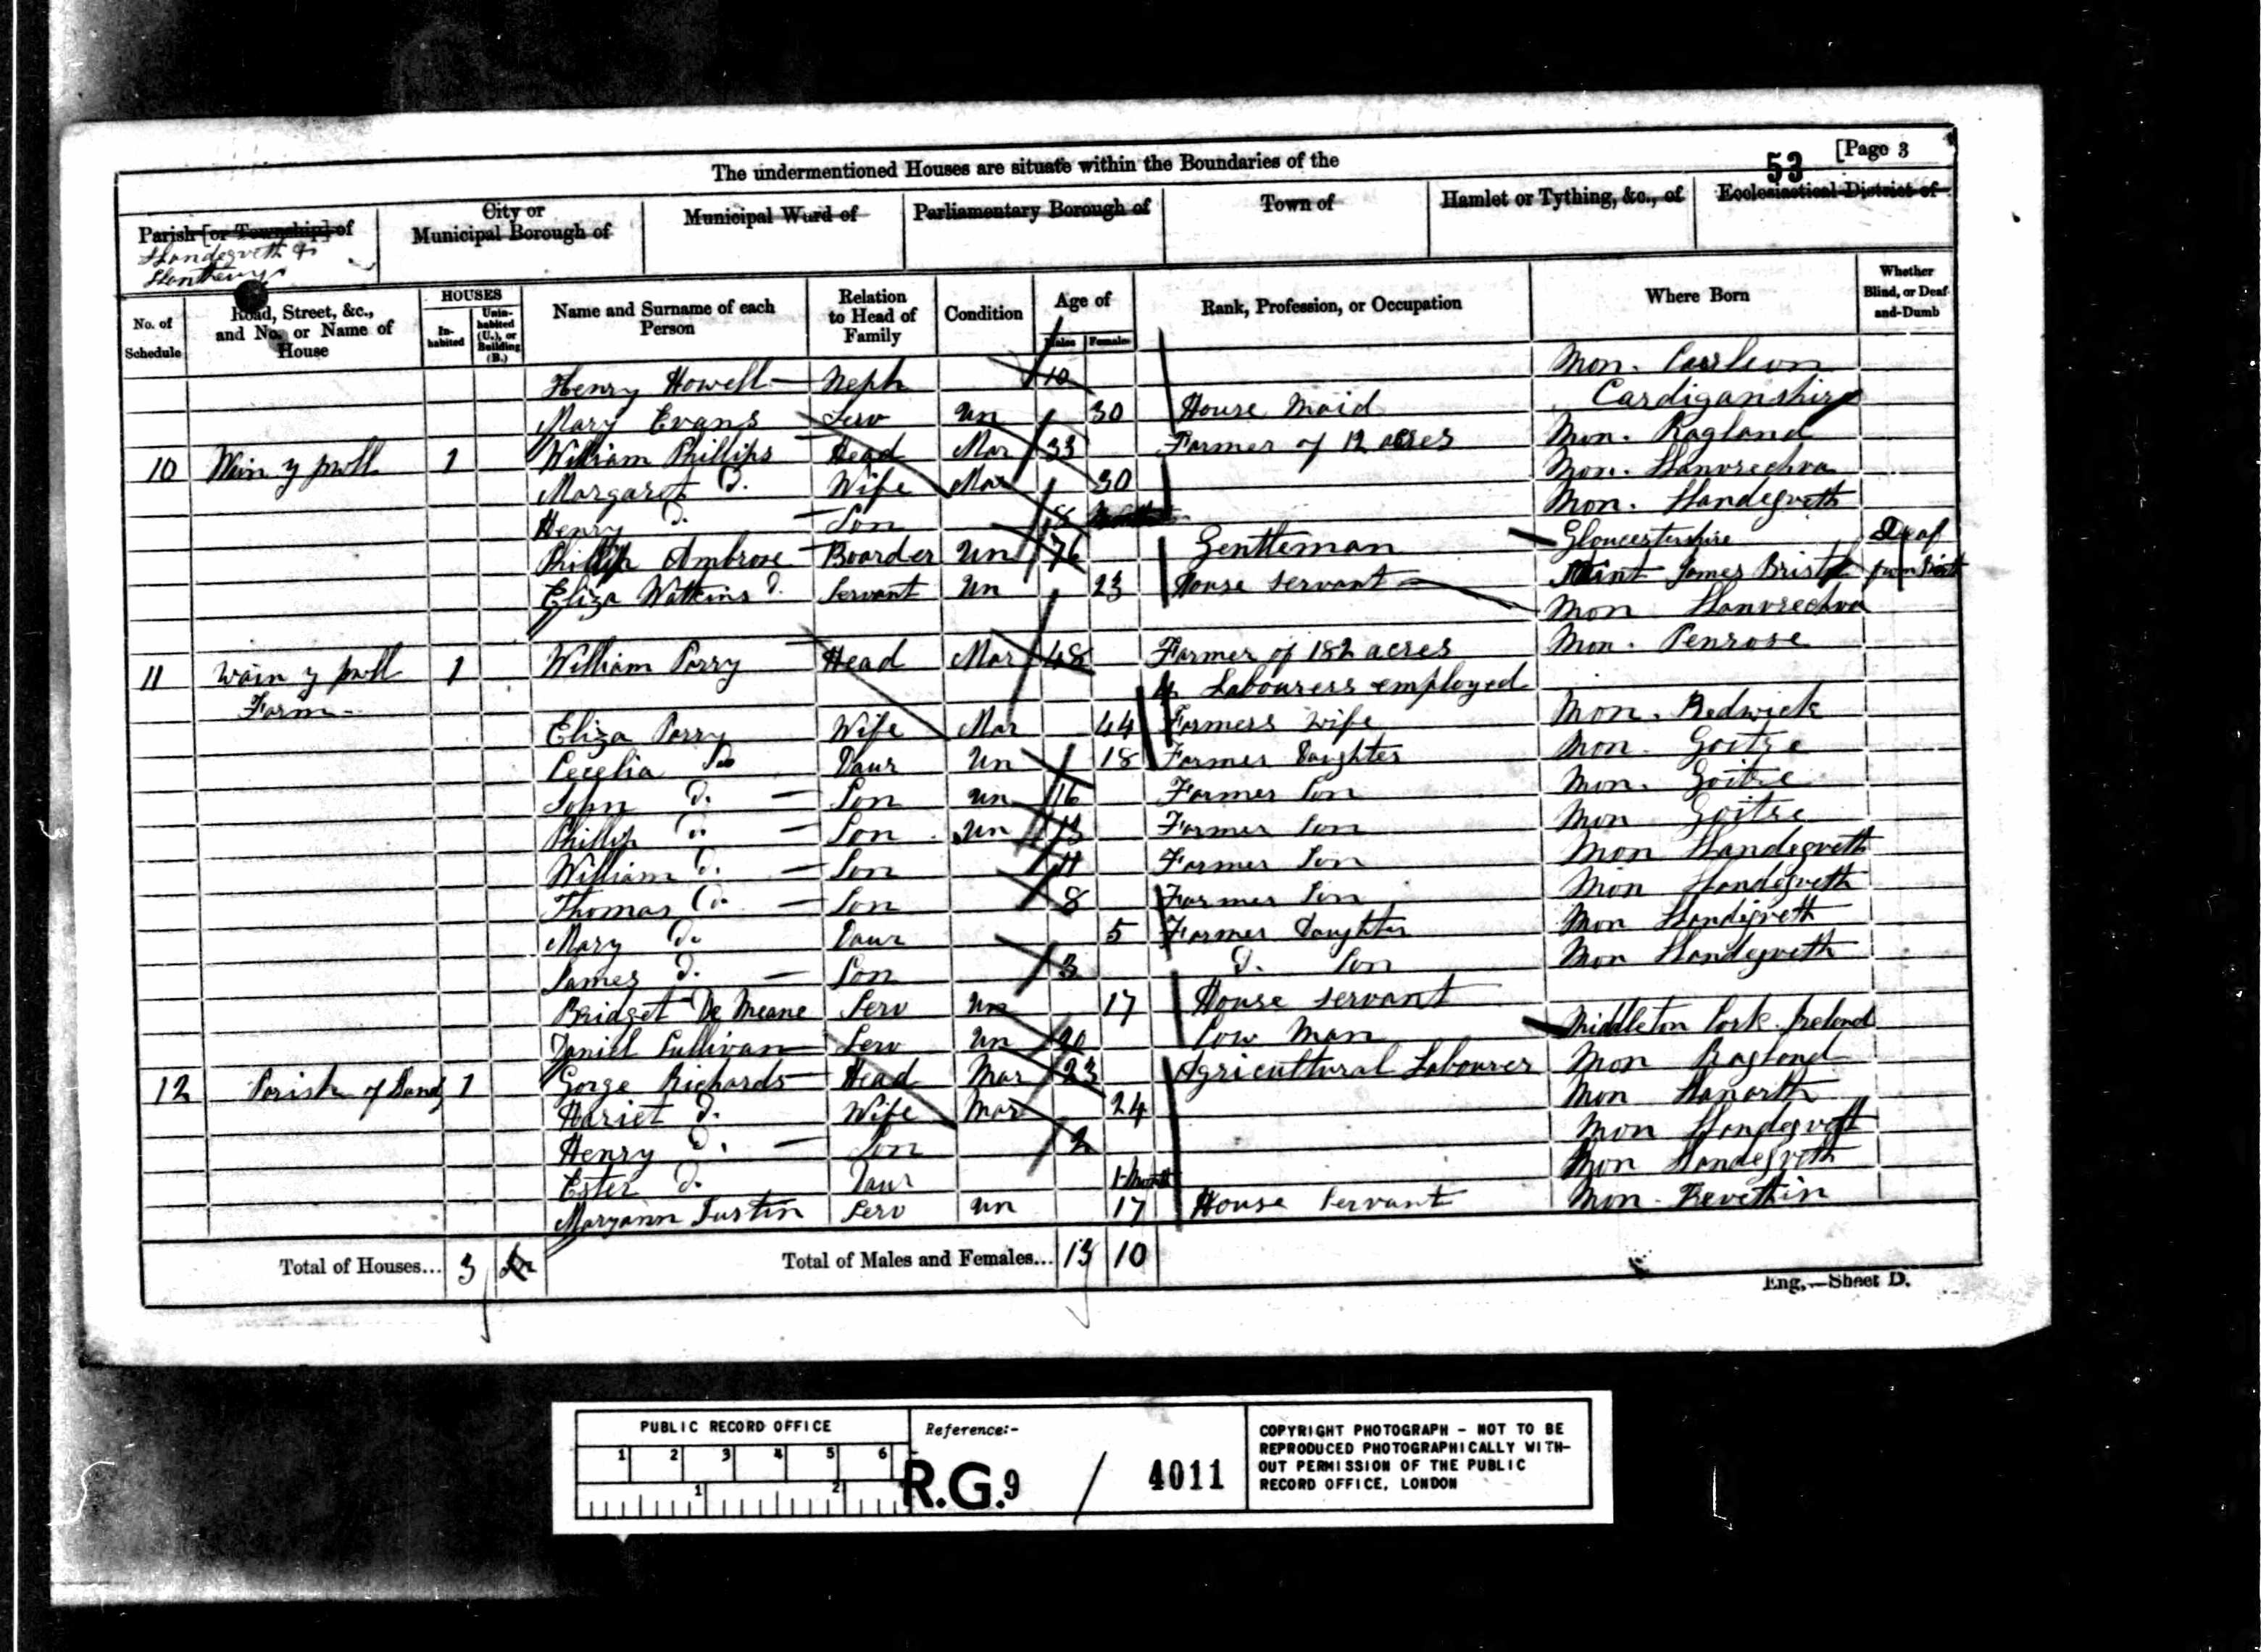 The undermentioned Houses are situate within the Boundaries of the
53 [Page 3
Parish [or Township] of
Llandegveth &
City or Municipal Borough of
Municipal Ward of
Parliamentary Borough of
Town of
Hamlet or Tything, &c., of
Ecclesiastical District of
No. of Schedule
Road, Street, &c., and No. or Name of House
HOUSES
In-habited
Unin-habited (U.), or Building (B.)
Name and Surname of each Person
Relation to Head of Family
Condition
Age of
Males Females
Rank, Profession, or Occupation
Where Born
Whether Blind, or Deaf-and-Dumb
Henry Howell Neph 10 Mon. Caerleon
Mary Evans Serv Un 30 House Maid Cardiganshire
10 Wain y pwll 1 William Phillips Head Mar 33 Farmer of 12 acres Mon. Ragland
Margaret D. Wife Mar 30 Mon. Llanvrechva
Henry D. Son 8 Mon. Llandegveth
Phillip Ambrose Boarder Un 76 Gentleman Gloucestershire Deaf
Saint James Bristol from Birth
Eliza Watkins D. Servant Un 23 House servant Mon Llanvrechva
11 Wain y pwll 1 William Parry Head Mar 48 Farmer of 182 acres Mon. Penrose
Farm 4 Labourers employed
Eliza Parry Wife Mar 44 Farmers Wife Mon. Redwick
Cecelia Do Daur Un 18 Farmer Daughter Mon. Goitre
John D. Son Un 16 Farmer Son Mon. Goitre
Phillip D. Son Un 13 Farmer Son Mon Goitre
William D. Son 11 Farmer Son Mon Llandegveth
Thomas D. Son 8 Farmer Son Mon Llandegveth
Mary D. Daur 5 Farmer Daughter Mon Llandegveth
James D. Son 3 D. Son Mon Llandegveth
Bridget De Meane Serv Un 17 House servant
Daniel Sullivan Serv Un 20 Cow Man Middleton Cork Ireland
12 Parish of Land 1 Gorge Richards Head Mar 23 Agricultural Labourer Mon Ragland
Hariet D. Wife Mar 24 Mon Llanarth
Henry D. Son 2 Mon Llandegveth
Ester D. Daur 1 Month Mon Llandegveth
Maryann Justin Serv Un 17 House Servant Mon. Trevethin
Total of Houses... 3
Total of Males and Females... 13 10
Eng.—Sheet D.
PUBLIC RECORD OFFICE
1 2 3 4 5 6
1 2
Reference:-
R.G. 9 / 4011
COPYRIGHT PHOTOGRAPH - NOT TO BE
REPRODUCED PHOTOGRAPHICALLY WITH-
OUT PERMISSION OF THE PUBLIC
RECORD OFFICE, LONDON